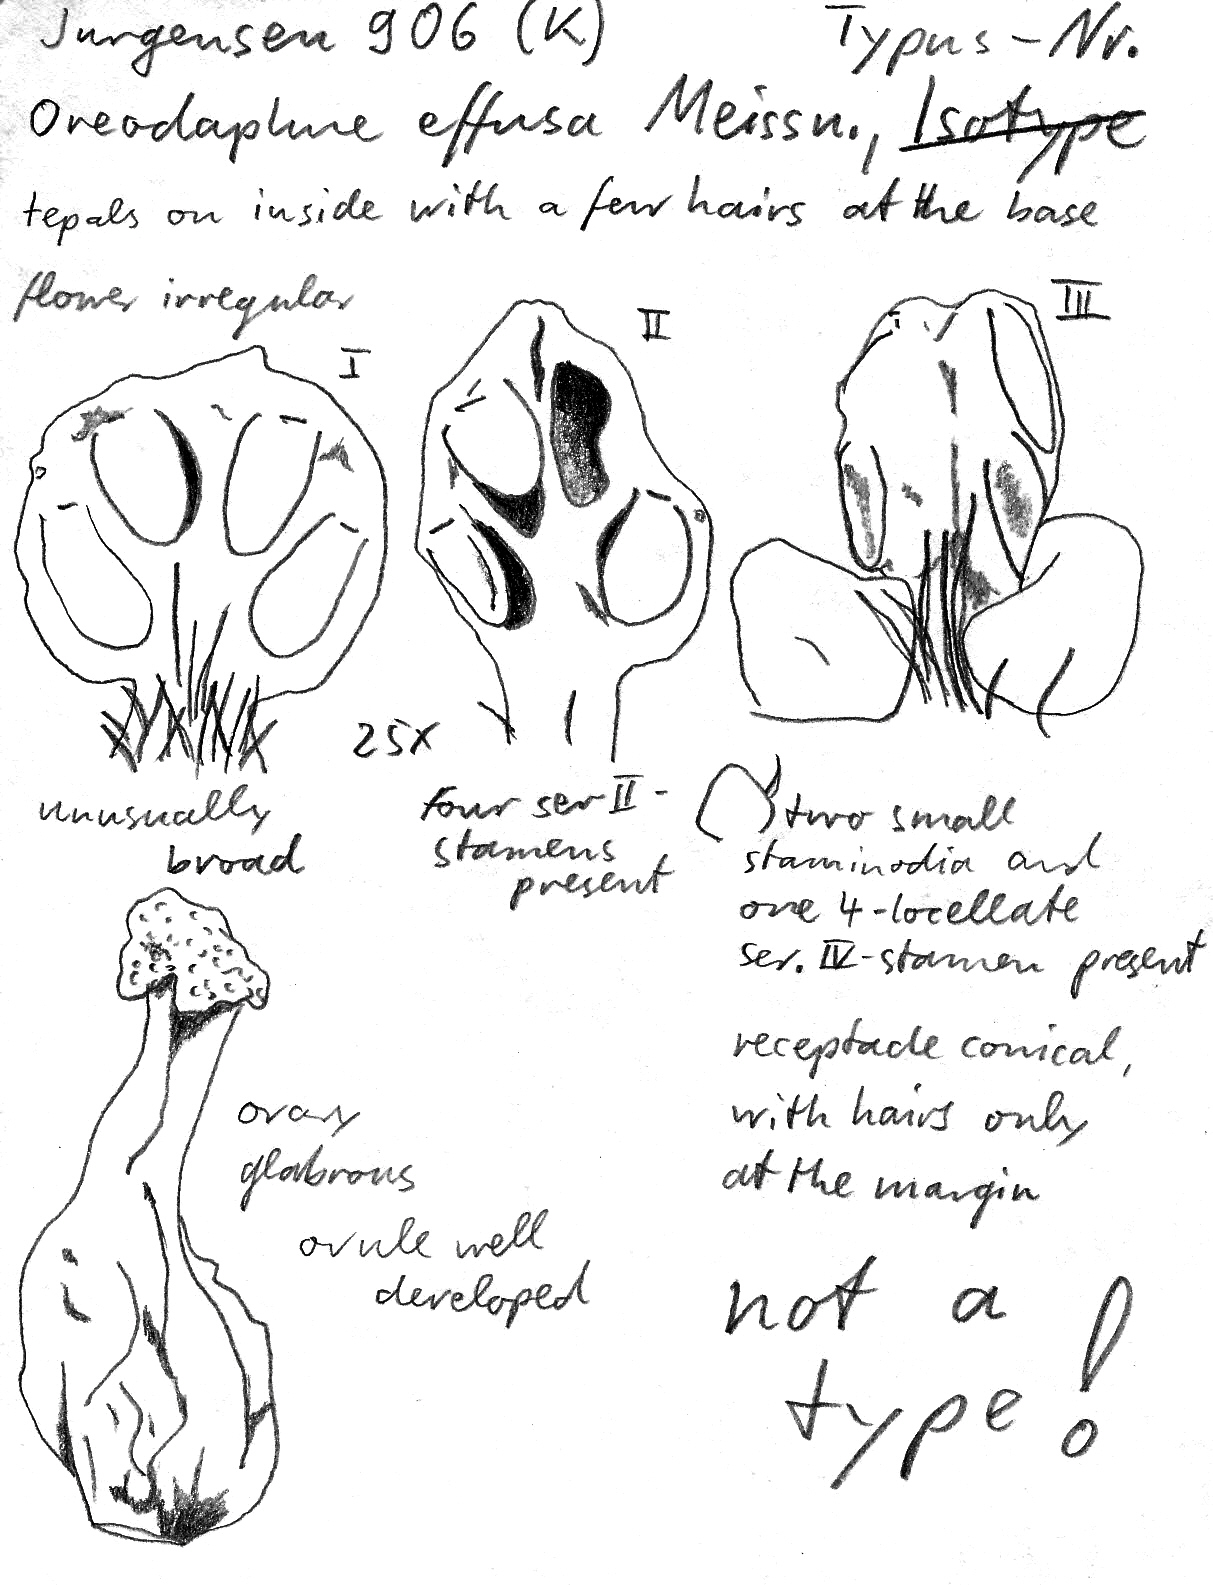 Jurgensen 906 (K) Typus-Nr.
Oreodaphne effusa Meissn., Isotype
tepals on inside with a few hairs at the base
flower irregular
I
II
III
25x
unusually
broad
four ser II-
stamens
present
two small
staminodia and
one 4-locellate
ser. IV-stamen present
receptacle conical,
with hairs only
at the margin
ovary
glabrous
ovule well
developed
not a
type!